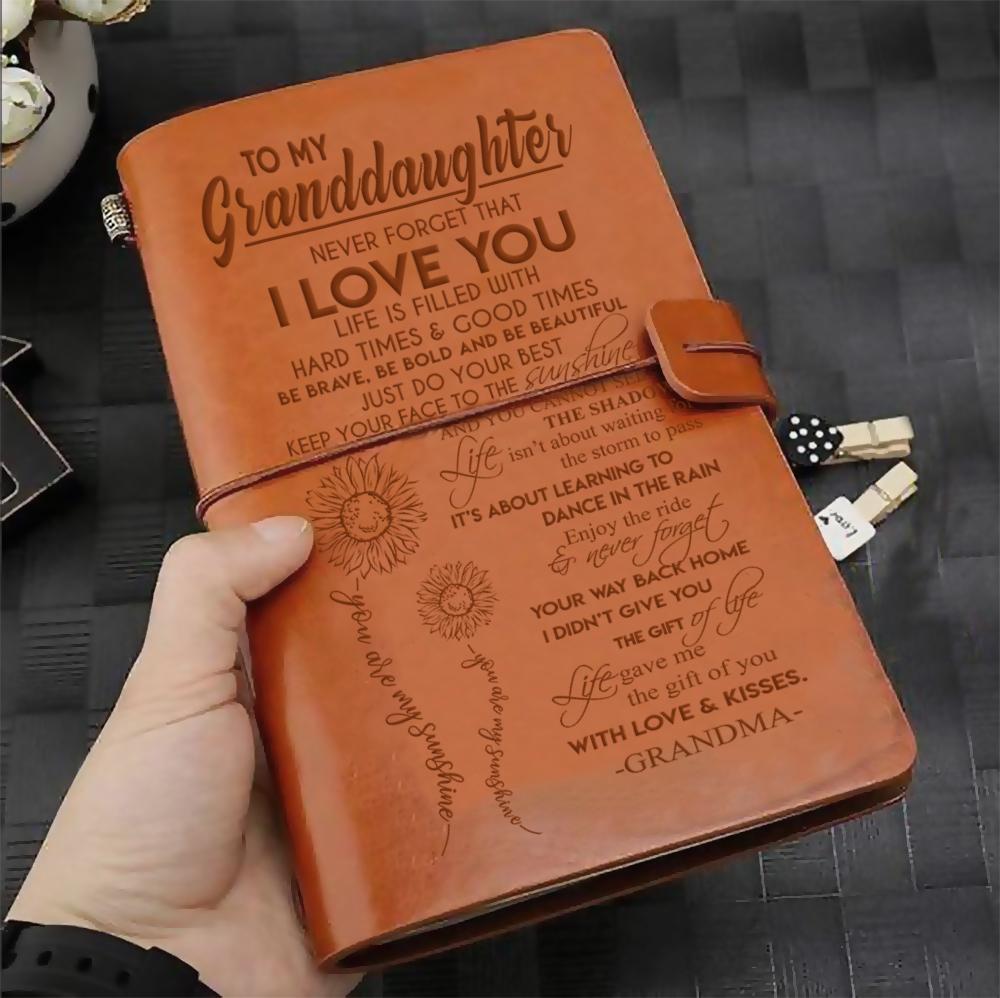 TO MY
Granddaughter
NEVER FORGET THAT
I LOVE YOU
LIFE IS FILLED WITH
HARD TIMES & GOOD TIMES
BE BRAVE, BE BOLD AND BE BEAUTIFUL
JUST DO YOUR BEST
KEEP YOUR FACE TO THE sunshine
AND YOU CANNOT
THE
Life isn't about waiting for
the storm to pass
IT'S ABOUT LEARNING TO
DANCE IN THE RAIN
Enjoy the ride
& never forget
YOUR WAY BACK HOME
I DIDN'T GIVE YOU
THE GIFT of life
Life gave me
the gift of you
WITH LOVE & KISSES.
-GRANDMA-
-you are my sunshine-
-you are my sunshine-